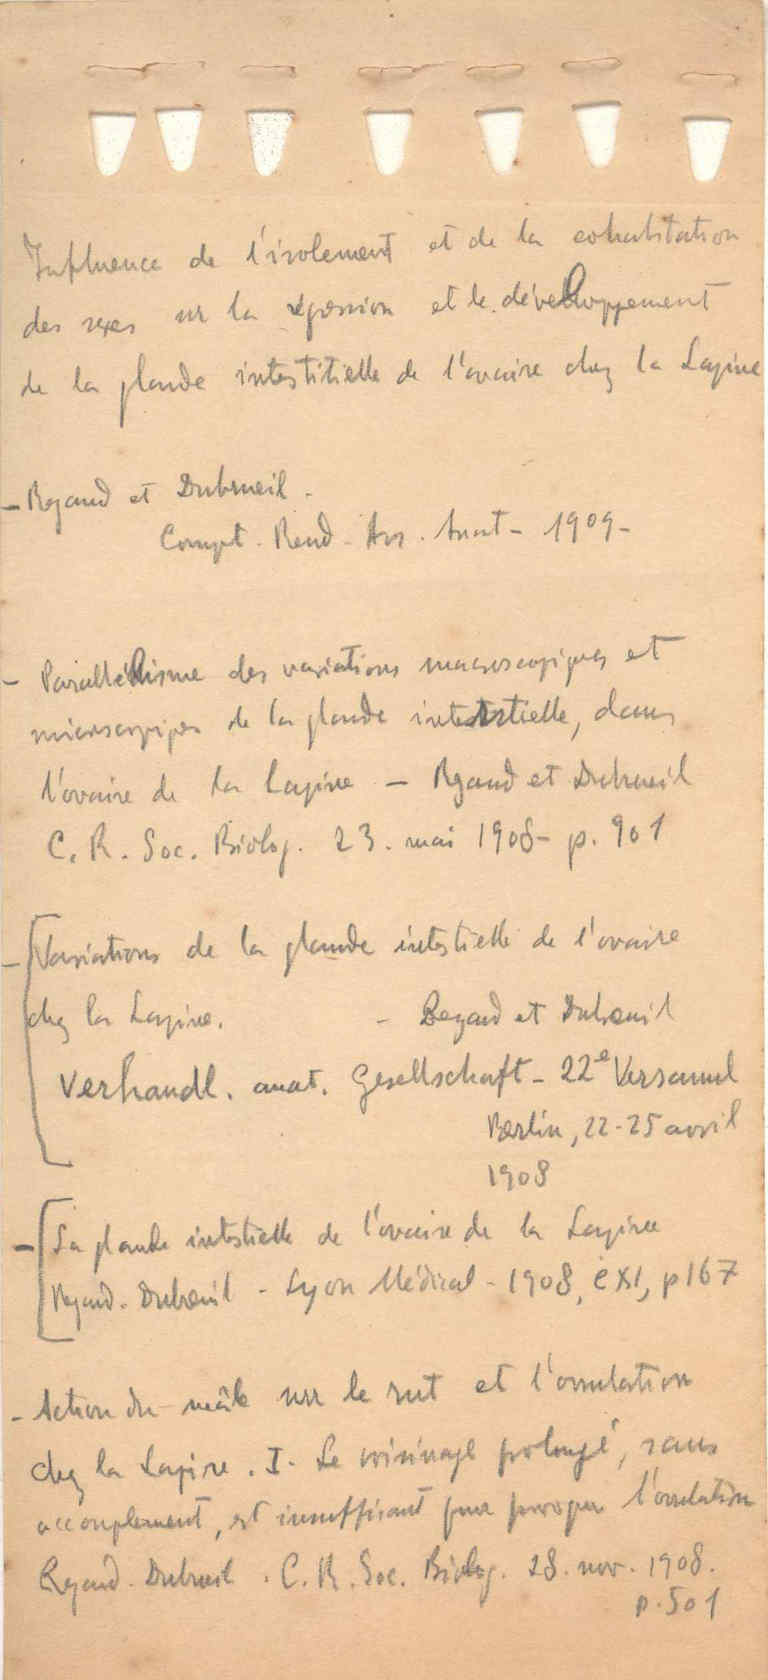 Influence de l'isolement et de la cohabitation
des sexes sur la régression et le développement
de la glande interstitielle de l'ovaire chez la Lapine
- Regaud et Dubreuil -
Compt. Rend. Ass. Anat - 1909 -
- Parallélisme des variations macroscopiques et
microscopiques de la glande interstitielle, dans
l'ovaire de la lapine - Regaud et Dubreuil
C. R. Soc. Biolog. 23. mai 1908 - p. 901
- Variations de la glande interstitielle de l'ovaire
chez la Lapine. - Regaud et Dubreuil
Verhandl. anat. Gesellschaft - 22e Versamml
Berlin, 22-25 avril
1908
- La glande interstitielle de l'ovaire de la Lapine
Regaud. Dubreuil - Lyon Médical - 1908, CXI, p 167
- Action du mâle sur le rut et l'ovulation
chez la Lapine. I. Le voisinage prolongé, sans
accouplement, est insuffisant pour provoquer l'ovulation
Regaud. Dubreuil. C. R. Soc. Biolog. 28. nov. 1908.
p. 501